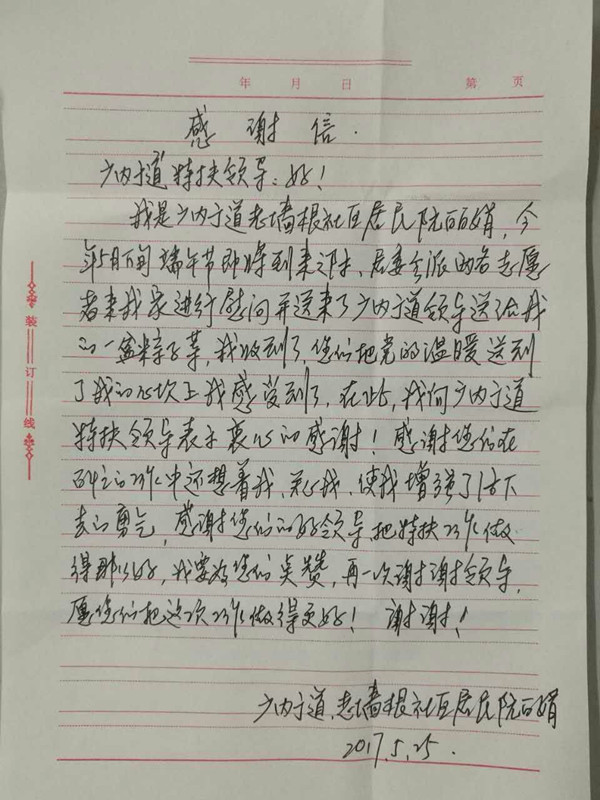 年 月 日 第 页
感 谢 信.
广内街道特扶领导：好！
我是广内街道老墙根社区居民阮丽娟，今
年5月下旬端午节即将到来之际，居委会派两名志愿
者来我家进行慰问并送来了广内街道领导送给我
的一盒粽子等，我收到了，您们把党的温暖送到
了我的心坎上我感受到了，在此，我向广内街道
特扶领导表示衷心的感谢！感谢您们在
的工作中还想着我、关心我、使我增强了活下
去的勇气，感谢您们的好领导把特扶工作做
得那么好，我要为您们点赞，再一次谢谢领导，
愿您们把这次工作做得更好！ 谢谢！
广内街道，老墙根社区居民阮丽娟
2017.5.25.
装订线